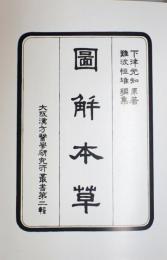 下津元知原著
難波恒雄編集
圖解本草
大阪漢方醫學研究所叢書第二輯